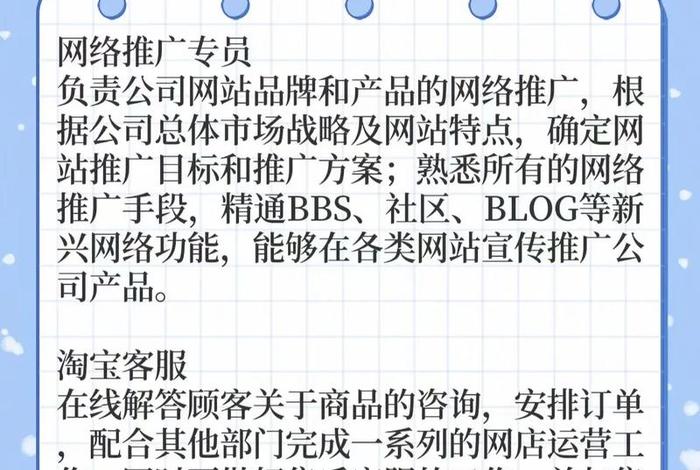 网络推广专员
负责公司网站品牌和产品的网络推广，根
据公司总体市场战略及网站特点，确定网
站推广目标和推广方案；熟悉所有的网络
推广手段，精通BBS、社区、BLOG等新
兴网络功能，能够在各类网站宣传推广公
司产品。
淘宝客服
在线解答顾客关于商品的咨询，安排订单
，配合其他部门完成一系列的网店运营工